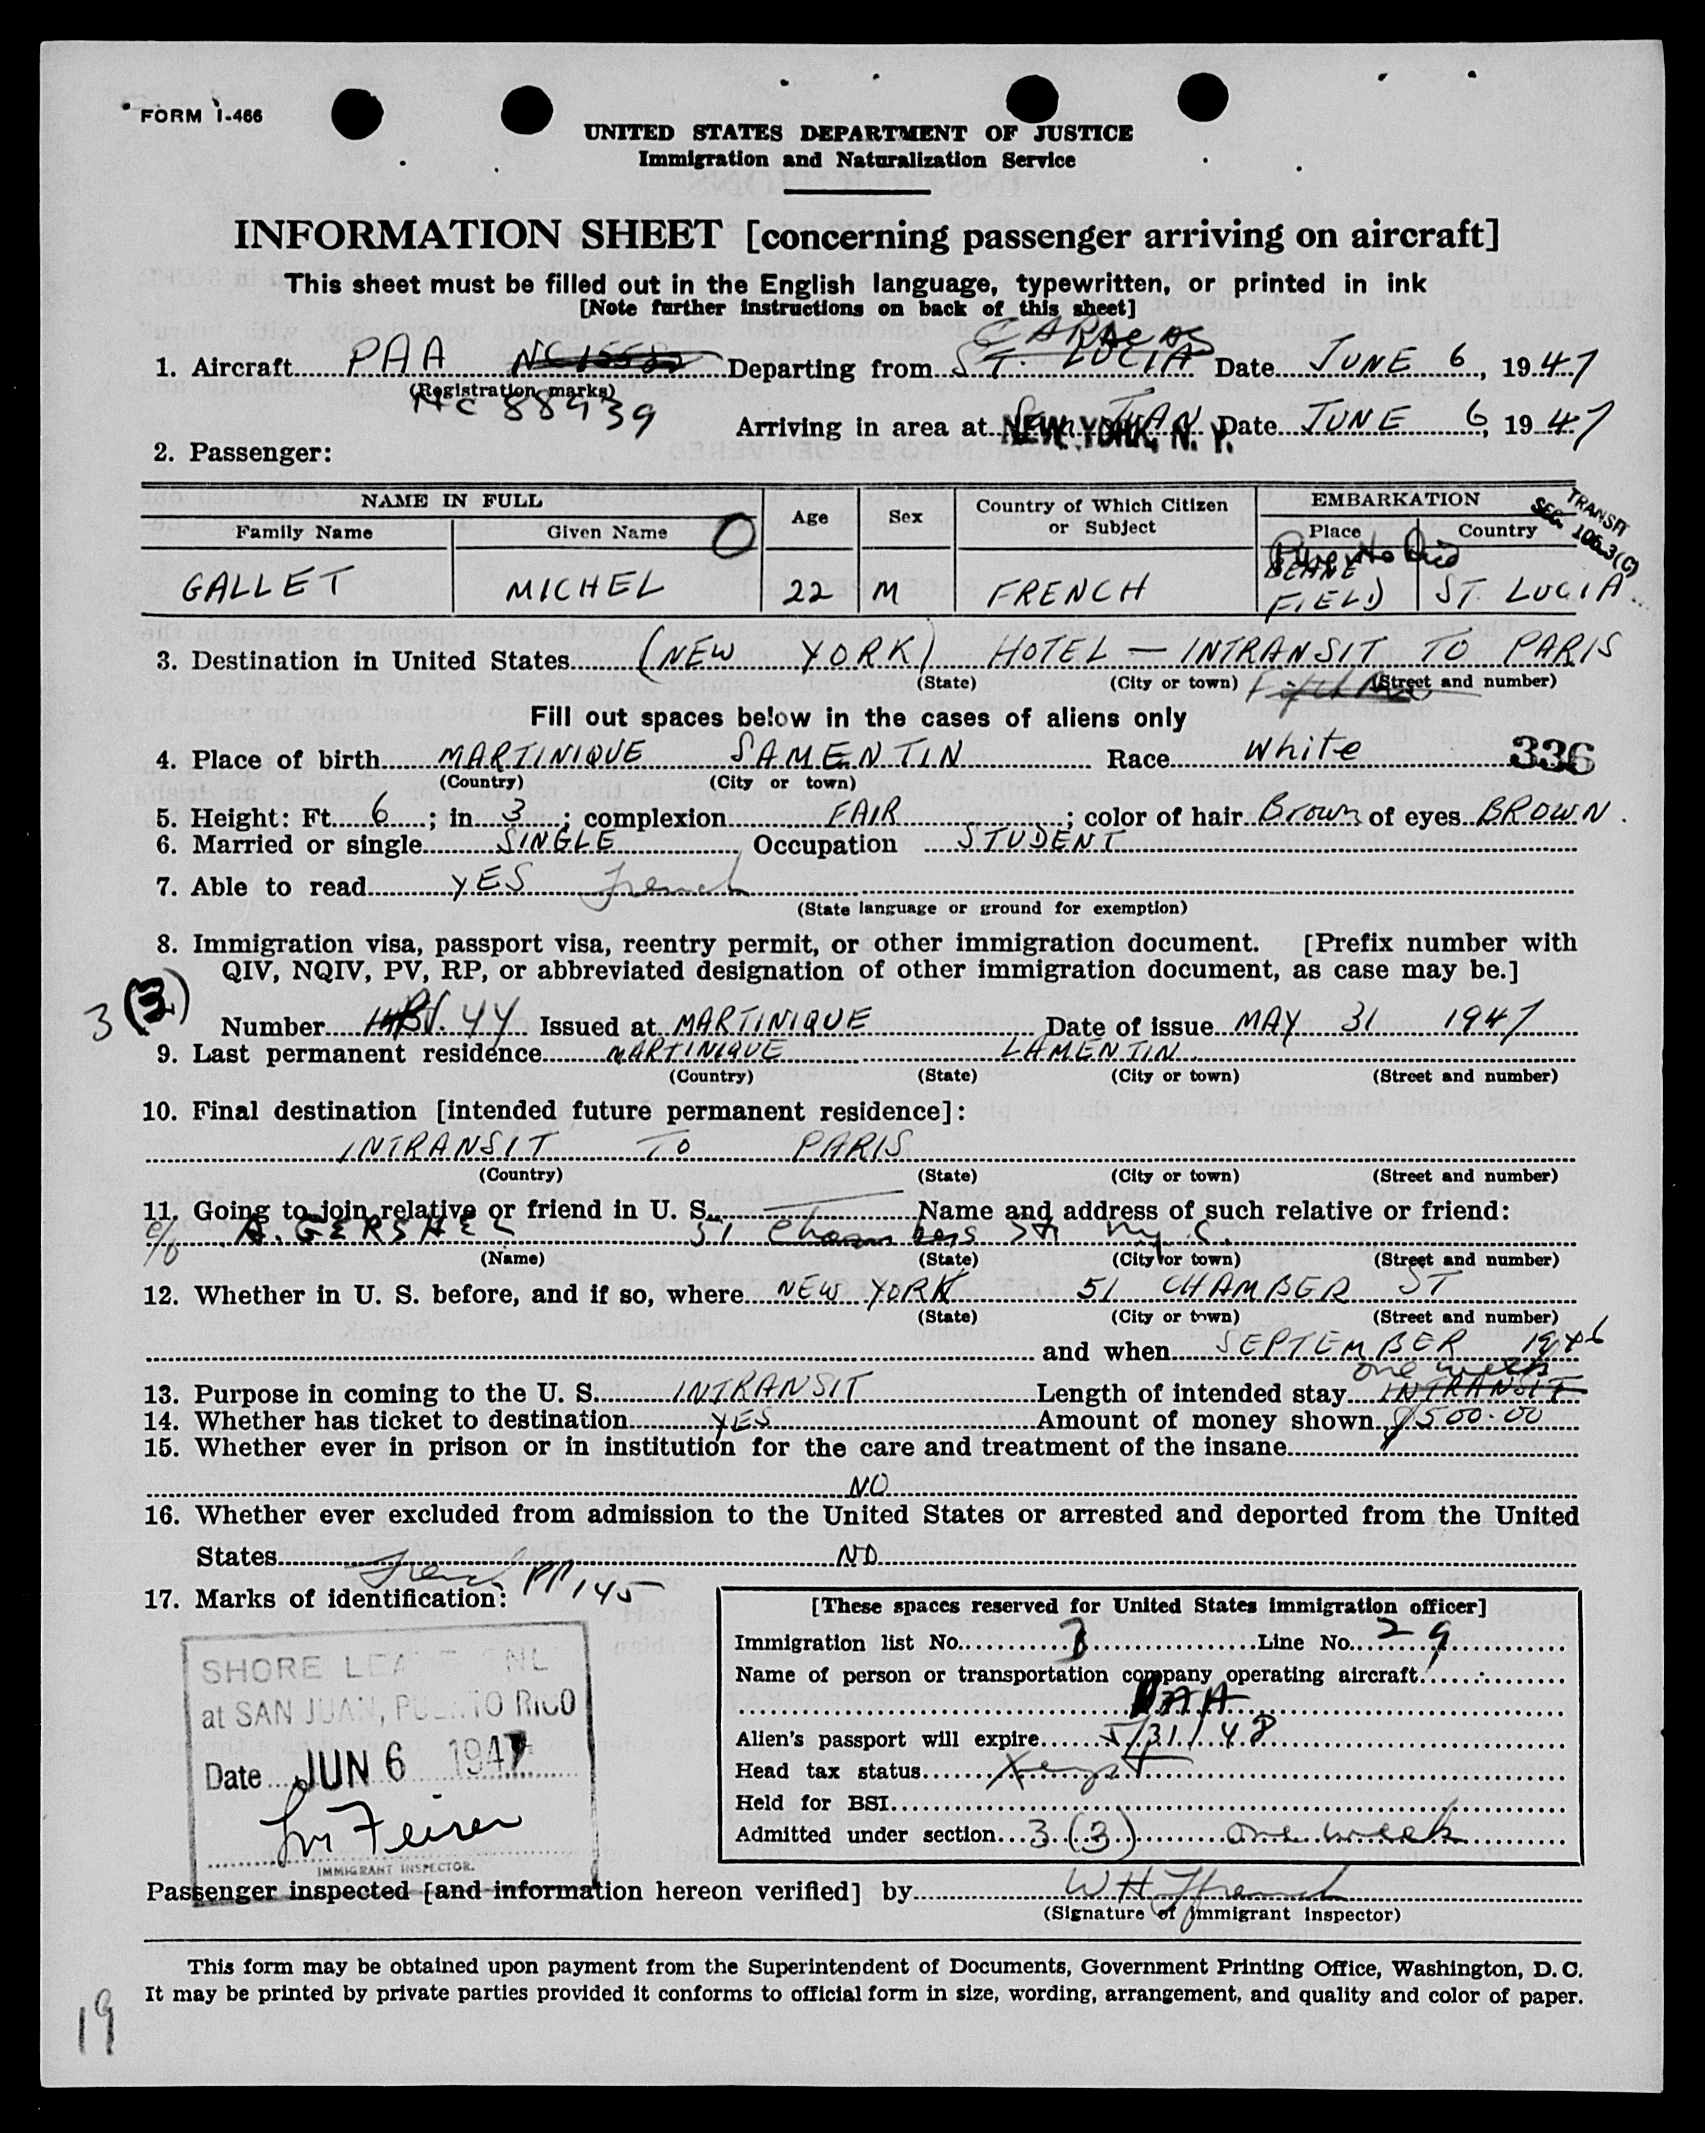 FORM I-466
UNITED STATES DEPARTMENT OF JUSTICE
Immigration and Naturalization Service
INFORMATION SHEET [concerning passenger arriving on aircraft]
This sheet must be filled out in the English language, typewritten, or printed in ink
[Note further instructions on back of this sheet]
CARACAS
1. Aircraft PAA Departing from ST. LUCIA Date JUNE 6, 1947
(Registration marks)
NC 88939
Arriving in area at NEW YORK, N. Y. Date JUNE 6, 1947
2. Passenger:
NAME IN FULL Age Sex Country of Which Citizen or Subject EMBARKATION
TRANSIT SEC. 106.3(C)
Family Name Given Name O Place Country
Puerto Rico
GALLET MICHEL 22 M FRENCH BEANE FIELD ST. LUCIA
3. Destination in United States (NEW YORK) HOTEL — INTRANSIT TO PARIS
(State) (City or town) (Street and number)
Fill out spaces below in the cases of aliens only
4. Place of birth MARTINIQUE SAMENTIN Race White 336
(Country) (City or town)
5. Height: Ft. 6; in. 3; complexion FAIR; color of hair Brown of eyes BROWN.
6. Married or single SINGLE, Occupation STUDENT
7. Able to read YES French
(State language or ground for exemption)
8. Immigration visa, passport visa, reentry permit, or other immigration document. [Prefix number with
QIV, NQIV, PV, RP, or abbreviated designation of other immigration document, as case may be.]
3 (3)
Number 44 Issued at MARTINIQUE Date of issue MAY 31 1947
9. Last permanent residence MARTINIQUE LAMENTIN
(Country) (State) (City or town) (Street and number)
10. Final destination [intended future permanent residence]:
INTRANSIT TO PARIS
(Country) (State) (City or town) (Street and number)
11. Going to join relative or friend in U. S. Name and address of such relative or friend:
c/o A. GERSHEL 51 Chambers St N.Y.C.
(Name) (State) (City or town) (Street and number)
12. Whether in U. S. before, and if so, where NEW YORK 51 CHAMBER ST
(State) (City or town) (Street and number)
and when SEPTEMBER 1946
one week
13. Purpose in coming to the U. S. INTRANSIT Length of intended stay INTRANSIT
14. Whether has ticket to destination YES Amount of money shown $500.00
15. Whether ever in prison or in institution for the care and treatment of the insane
NO
16. Whether ever excluded from admission to the United States or arrested and deported from the United
States NO
17. Marks of identification: French PP 145
[These spaces reserved for United States immigration officer]
Immigration list No. 3 Line No. 29
Name of person or transportation company operating aircraft
PAA
Alien's passport will expire 5/31/48
Head tax status
Held for BSI
Admitted under section 3 (3) one week
SHORE
at SAN JUAN, PUERTO RICO
Date JUN 6 1947
IMMIGRANT INSPECTOR.
Passenger inspected [and information hereon verified] by W H Ffrench
(Signature of immigrant inspector)
This form may be obtained upon payment from the Superintendent of Documents, Government Printing Office, Washington, D. C.
It may be printed by private parties provided it conforms to official form in size, wording, arrangement, and quality and color of paper.
19